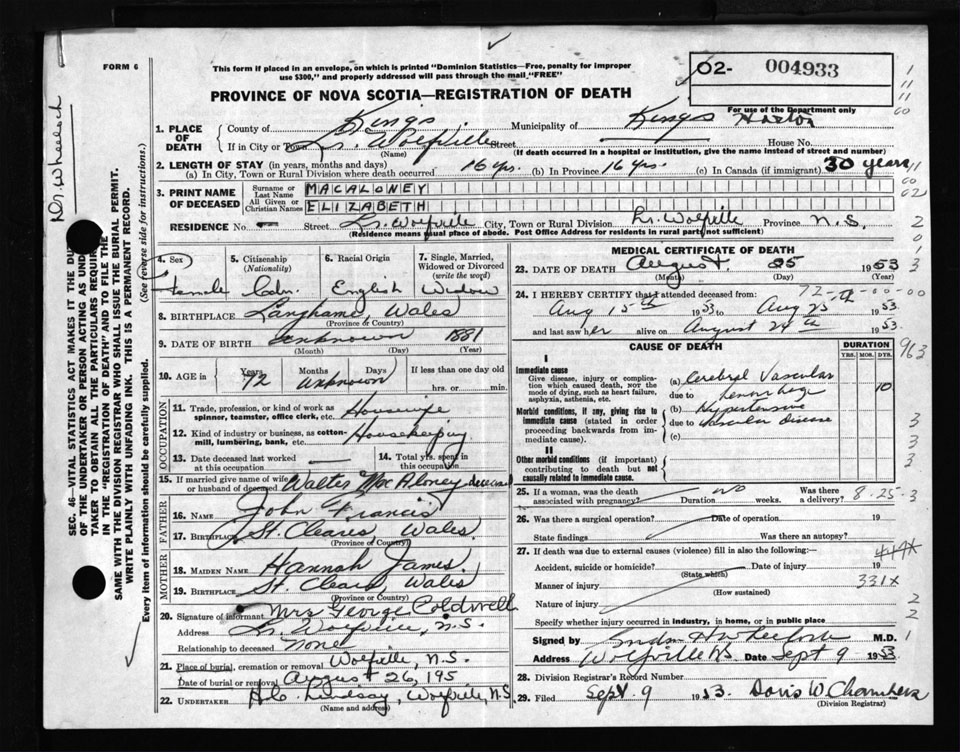 FORM 6
This form if placed in an envelope, on which is printed "Dominion Statistics—Free, penalty for improper
use $300," and properly addressed will pass through the mail "FREE"
O2- 004933
For use of the Department only
PROVINCE OF NOVA SCOTIA—REGISTRATION OF DEATH
Dr. Wheelock
SEC. 46—VITAL STATISTICS ACT MAKES IT THE DU
OF THE UNDERTAKER OR PERSON ACTING AS UND
TAKER TO OBTAIN ALL THE PARTICULARS REQUIR
IN THE "REGISTRATION OF DEATH" AND TO FILE THE
SAME WITH THE DIVISION REGISTRAR WHO SHALL ISSUE THE BURIAL PERMIT.
WRITE PLAINLY WITH UNFADING INK. THIS IS A PERMANENT RECORD.
Every item of information should be carefully supplied. (See reverse side for instructions.)
1. PLACE OF DEATH
County of Kings Municipality of Kings
Horton
If in City or Town Lr. Wolfville Street House No.
(Name) (If death occurred in a hospital or institution, give the name instead of street and number)
2. LENGTH OF STAY (in years, months and days)
(a) In City, Town or Rural Division where death occurred 16 yrs. (b) In Province 16 yrs. (c) In Canada (if immigrant) 30 years
3. PRINT NAME OF DECEASED
Surname or Last Name MACALONEY
All Given or Christian Names ELIZABETH
RESIDENCE No. — Street Lr. Wolfville City, Town or Rural Division Lr. Wolfville Province N.S.
(Residence means usual place of abode. Post Office Address for residents in rural parts not sufficient)
4. Sex 5. Citizenship (Nationality) 6. Racial Origin 7. Single, Married, Widowed or Divorced (write the word)
Female Cdn. English Widow
8. BIRTHPLACE Langhams, Wales
(Province or Country)
9. DATE OF BIRTH unknown 1881
(Month) (Day) (Year)
10. AGE in Years Months Days If less than one day old
72 unknown hrs. or min.
OCCUPATION
11. Trade, profession, or kind of work as spinner, teamster, office clerk, etc. Housewife
12. Kind of industry or business, as cotton-mill, lumbering, bank, etc. Housekeeping
13. Date deceased last worked at this occupation — 14. Total yrs. spent in this occupation
15. If married give name of wife or husband of deceased Walter MacAloney deceased
FATHER
16. NAME John Francis
17. BIRTHPLACE St. Clears, Wales
(Province or Country)
MOTHER
18. MAIDEN NAME Hannah James
19. BIRTHPLACE St. Clears Wales
(Province or Country)
20. Signature of informant Mrs George Coldwell
Address Lr. Wolfville, N.S.
Relationship to deceased None
21. Place of burial, cremation or removal Wolfville, N.S.
Date of burial or removal August 26, 195
22. UNDERTAKER Lindsay, Wolfville, N.S.
(Name and address)
MEDICAL CERTIFICATE OF DEATH
23. DATE OF DEATH August 25 1953
(Month) (Day) (Year)
72-00-00-00
24. I HEREBY CERTIFY that I attended deceased from:
Aug 15th 1953 to Aug 25th 1953
and last saw her alive on August 24th 1953.
CAUSE OF DEATH DURATION
YRS. MOS. DYS.
I
Immediate cause
Give disease, injury or complication which caused death, NOT the mode of dying, such as heart failure, asphyxia, asthenia, etc.
(a) Cerebral Vascular
due to hemorrhage 10
Morbid conditions, if any, giving rise to immediate cause (stated in order proceeding backwards from immediate cause).
(b) Hypertensive
due to vascular disease
(c)
II
Other morbid conditions (if important) contributing to death but not causally related to immediate cause.
25. If a woman, was the death associated with pregnancy? no Duration weeks. Was there a delivery?
8-25-3
26. Was there a surgical operation? Date of operation 19
State findings Was there an autopsy?
27. If death was due to external causes (violence) fill in also the following:—
Accident, suicide or homicide? Date of injury 19
(State which)
Manner of injury 331X
(How sustained)
Nature of injury
Specify whether injury occurred in industry, in home, or in public place
Signed by M.D.
Address Wolfville NS Date Sept 9 1953
28. Division Registrar's Record Number
29. Filed Sept. 9 1953 Doris W Chambers
(Division Registrar)
963